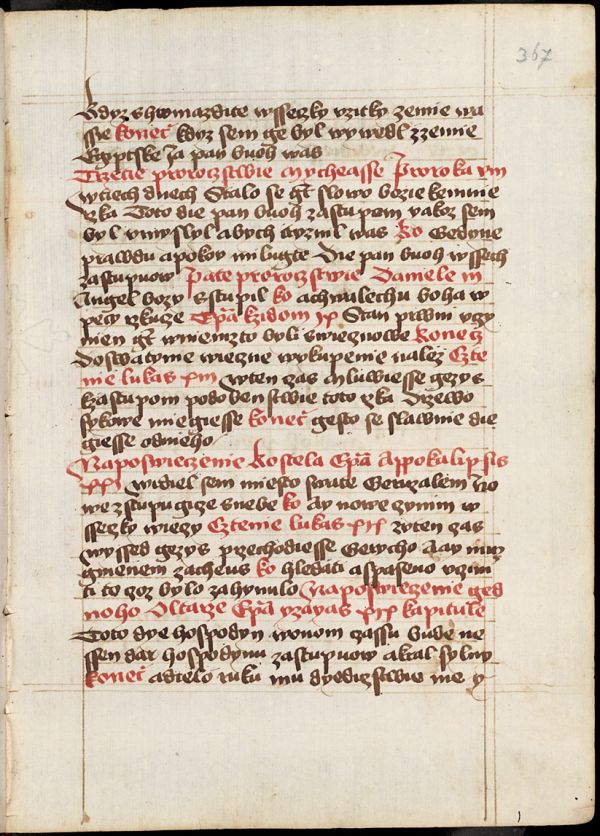 367
Kdyz shromazdite wsseczky vzitky zemie wa
ssie konecz kdyz sem ge byl wywedl zzemie
Egyptske Ja pan buoh was
Trzetie prorocztwie Mycheasse Proroka VII
Wtiech dnech Stalo se gest slowo bozie kemnie
rzka Toto die pan buoh zastupow yakoz sem
byl vmyslyl abych tryznil was ko Gedyne
prawdu apokoy milugte Die pan buoh wssech
zastupuow Pate prorocztwie Daniele III
Angel bozy sstupil ko achwalechu boha w
peczy rzkuze Epla kzidom IX Stan prwni vczy
nien gest wniemzto byli swieznowe konecz
Doswatynie wieczne wykupenie nalez Czte
nie lukas XIII Wten czas mluwiesse gezys
kzastupom podobenstwie toto rzka Drzewo
fykowe miegiesse konecz gesto se slawnie die
giesse odnieho
Naposwieczenie kostela Epla Appokalipsis
XXI Widiel sem miesto swate Geruzalem No
we zstupugicze snebe ko Ay nowe czynim w
sseczky wieczy Cztenie lukas XIX Wten czas
wyssed gezys przechodiesse Gerycho Aay muz
gmenem zacheus ko hledati aspaseno vczini
ti to coz bylo zahynulo Naposwieczenie ged
noho Oltarze Epla yzayas XIX kapitule
Toto dye hospodyn wonom czassu bude ne
ssen dar hospodynu zastupuow aktal sylny
konecz adielo ruku mu dyedicztwie me y